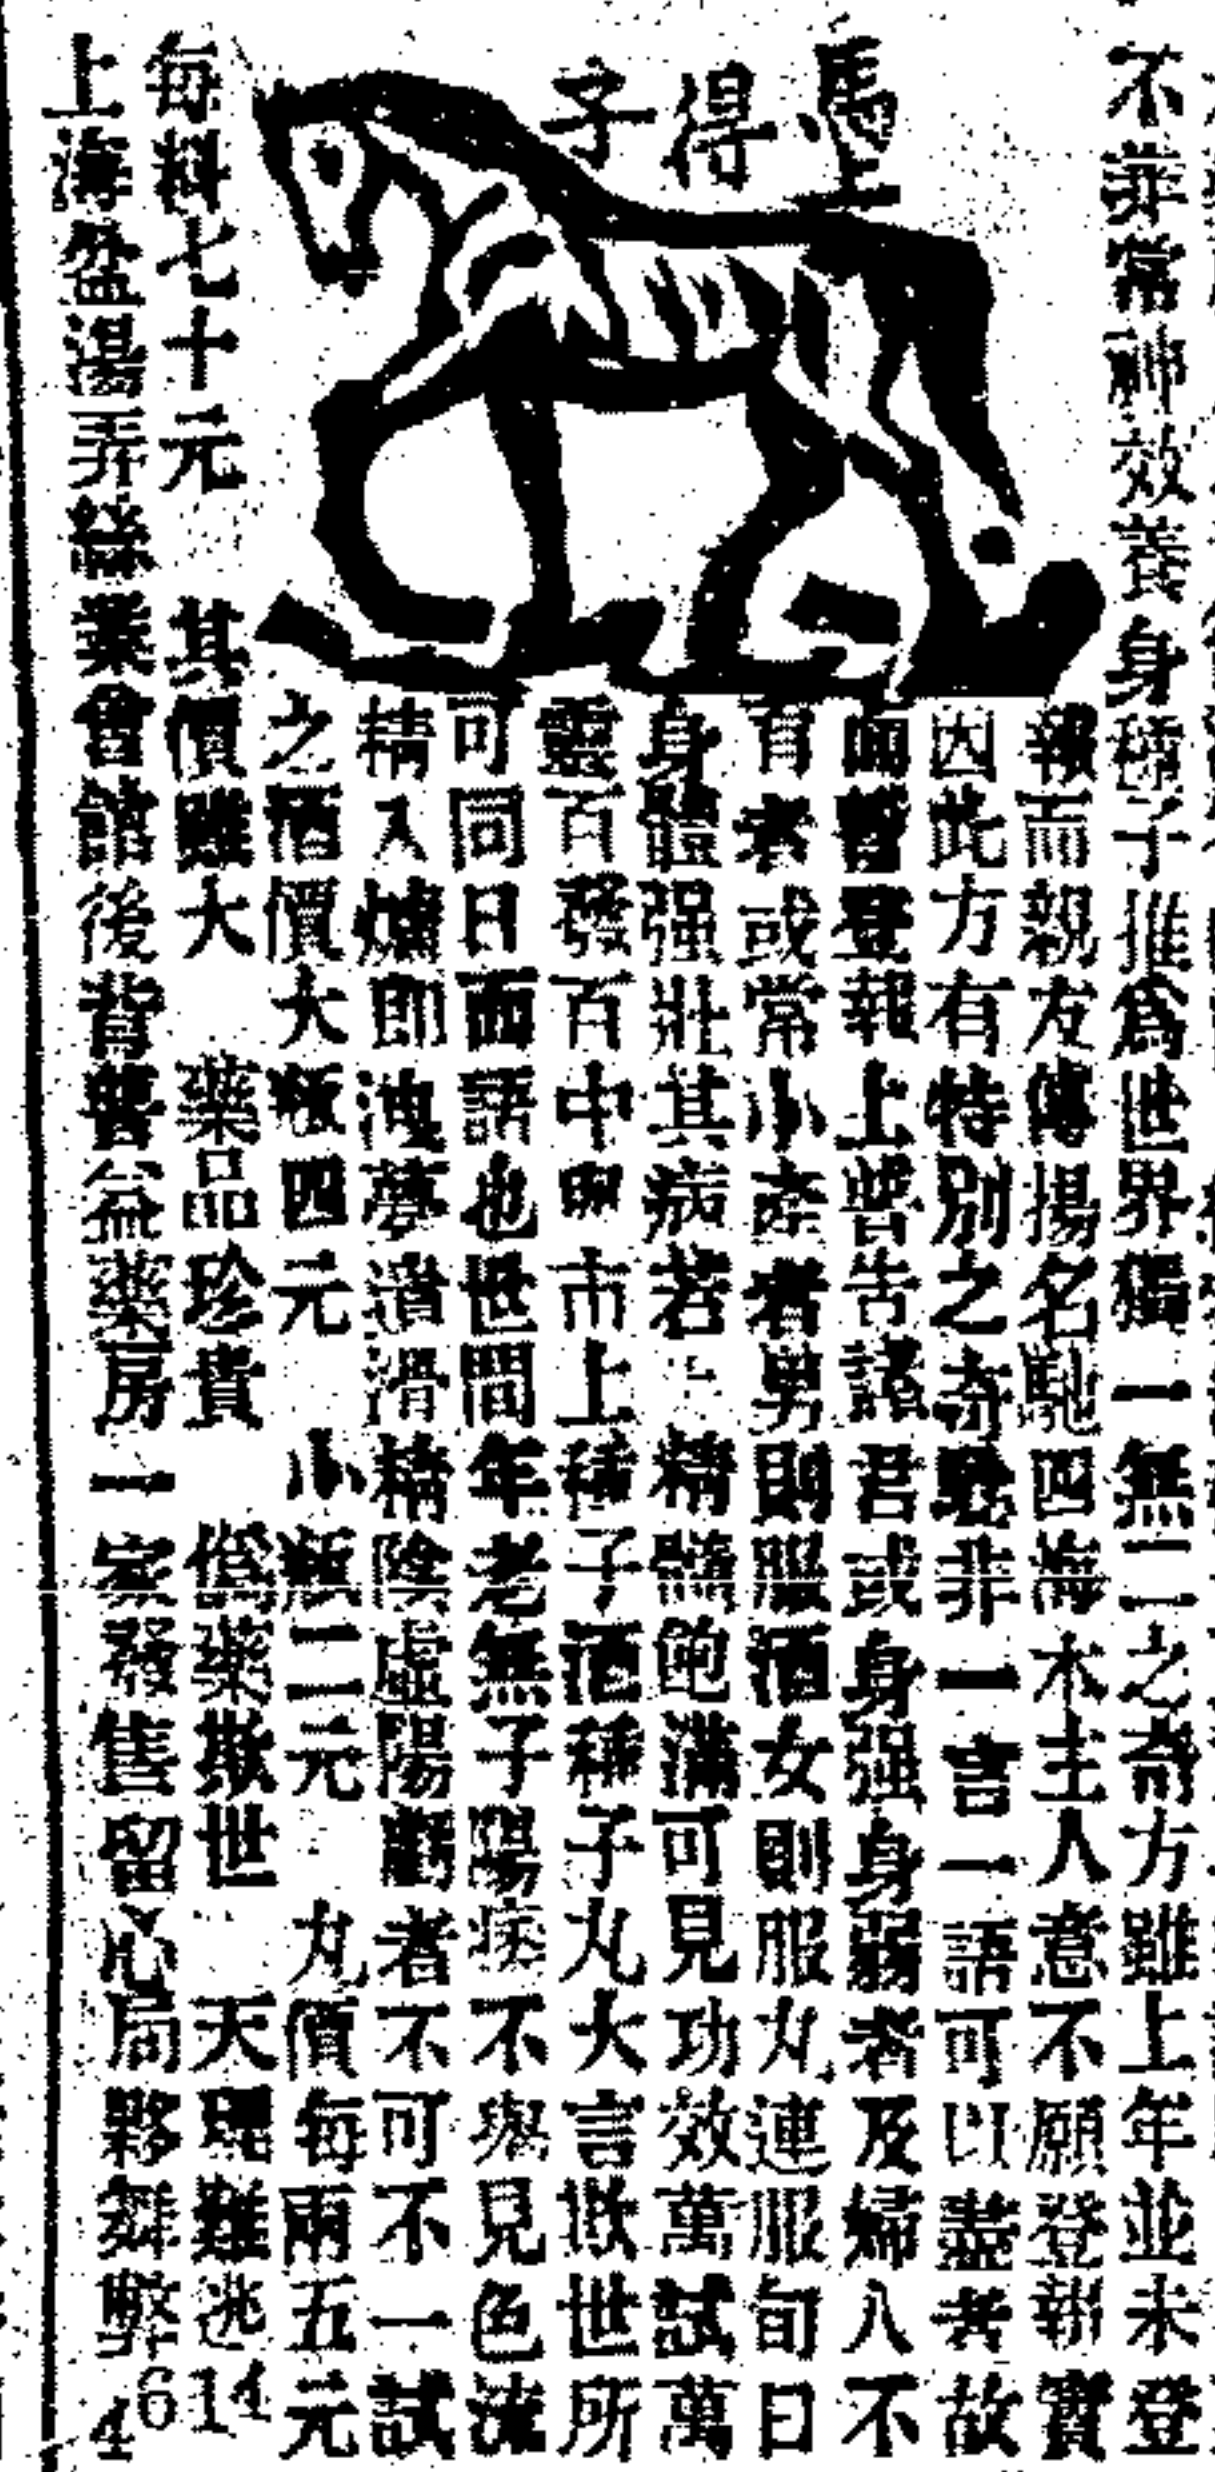 馬上得子
不非常神效養身種子推為世界獨一無二之奇方雖上年並未登
報而親友傳揚名馳四海本主人意不願登報實
因此方有特別之奇驗非一言一語可以盡者故
而暫登報上警告諸君或身强身弱者及婦人不
育者或常小產者男則服酒女則服丸連服旬日
身體强壯其病若 精髓飽滿可見功效萬試萬
靈百發百中耶市上種子酒種子丸大言欺世所
可同日而語也世間年老無子陽痿不舉見色流
精入爐即洩夢遺滑精陰虛陽虧者不可不一試
之酒價大瓶四元 小瓶二元 丸價每兩五元
每料七十元 其價雖大 藥品珍貴 僞藥欺世 天理難逃
上海盆湯弄絲業會館後背 益藥房一家發售留心局夥舞弊
4614